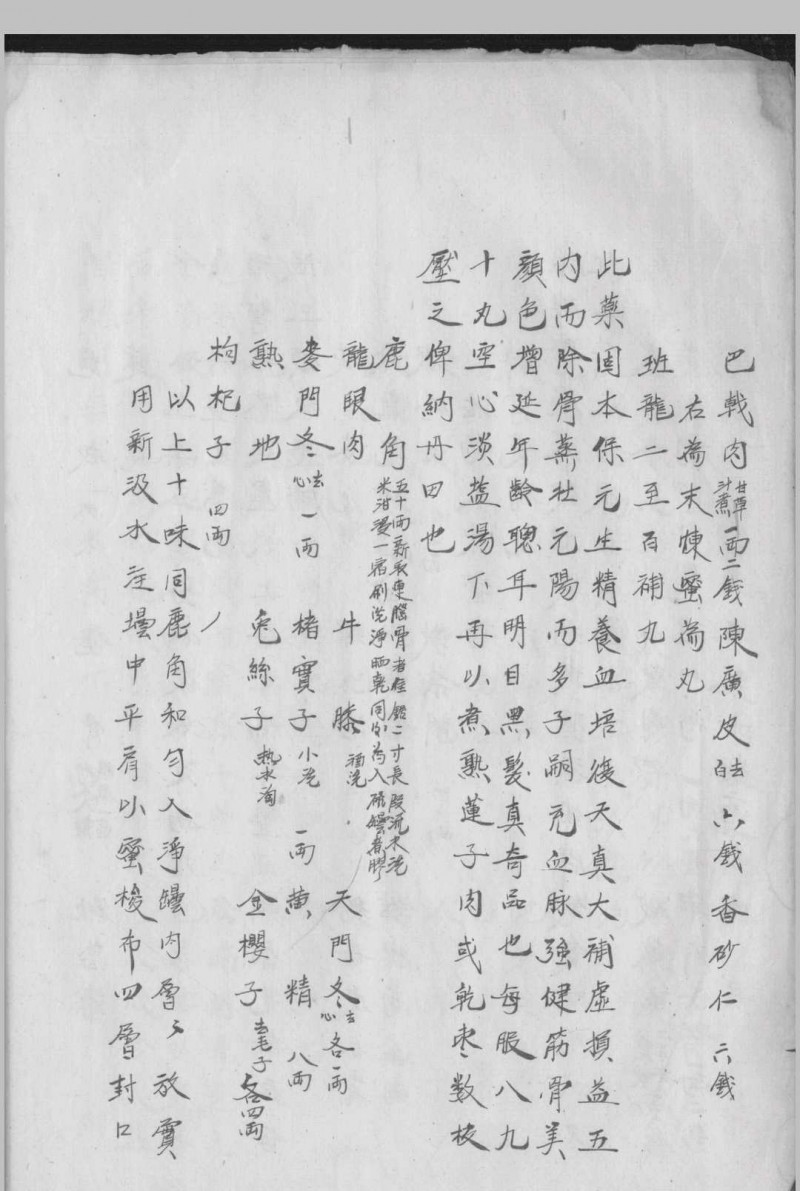 巴戟肉甘草汁煮一兩二錢陳廣皮去白六錢香砂仁六錢
右為末煉蜜為丸
班龍二至百補丸
此藥固本保元生精養血培後天真大補虛損益五
內而除骨蒸壯元陽而多子嗣充血脉強健筋骨美
顏色增延年齡聰耳明目黑髮真奇品也每服八九
十丸空心淡鹽湯下再以煮熟蓮子肉或乾棗数枚
壓之俾納丹田也
鹿角五十兩新取連腦骨者佳鋸二寸長段流水洗
米泔浸一宿刷洗淨晒乾同 為入 罈煮膠
龍眼肉 牛膝酒洗 天門冬去心各一兩
麥門冬去心一兩 楮實子小洗一兩 黃精八兩
熟地 兔絲子熱水淘 金櫻子去毛子各四兩
枸杞子四兩
以上十味同鹿角和勻入淨罈内層々放實
用新汲水注壜中平肩以蜜梭布四層封口